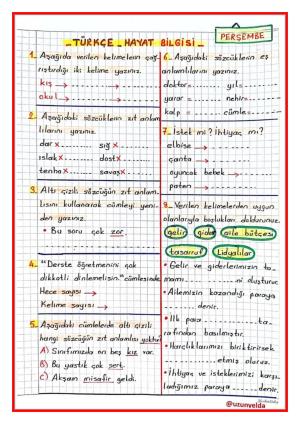 _ TÜRKÇE _ HAYAT BİLGİSİ _
PERŞEMBE
1_ Aşağıda verilen kelimelerin çağ-
rıştırdığı iki kelime yazınız.
kış →
okul →
2_ Aşağıdaki sözcüklerin zıt anlam-
lılarını yazınız.
dar x sığ x
ıslak x dost x
tenha x savaş x
3_ Altı çizili sözcüğün zıt anlam-
lısını kullanarak cümleyi yeni-
den yazınız.
• Bu soru çok zor.
4_ "Derste öğretmenini çok
dikkatli dinlemelisin." cümlesinde
Hece sayısı →
Kelime sayısı →
5_ Aşağıdaki cümlelerde altı çizili
hangi sözcüğün zıt anlamlısı yoktur?
A) Sınıfımızda on beş kız var.
B) Bu yastık çok sert.
C) Akşam misafir geldi.
6_ Aşağıdaki sözcüklerin eş
anlamlılarını yazınız.
doktor= yıl=
yarar= nehir=
kalp= cümle=
7_ İstek mi? İhtiyaç mı?
elbise →
çanta →
oyuncak bebek →
paten →
8_ Verilen kelimelerden uygun
olanlarıyla boşlukları doldurunuz.
gelir gider aile bütçesi
tasarruf Lidyalılar
• Gelir ve giderlerimizin ta-
mamı ni oluşturur.
• Ailemizin kazandığı paraya
denir.
• İlk para ta-
rafından basılmıştır.
• Harçlıklarımızı biriktirirsek
etmiş oluruz.
• İhtiyaç ve isteklerimizi karşı-
ladığımız paraya denir.
@uzunyelda